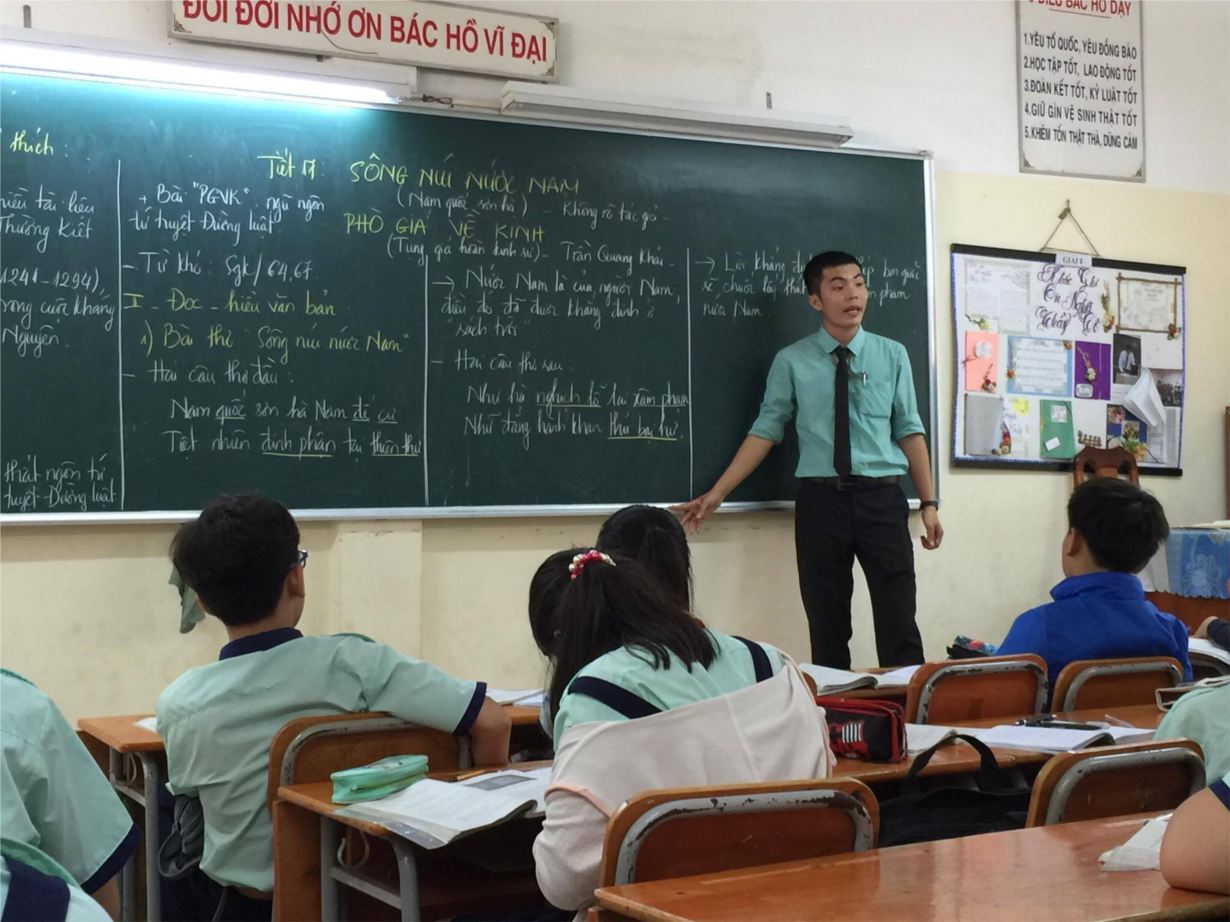 ĐỜI ĐỜI NHỚ ƠN BÁC HỒ VĨ ĐẠI
5 ĐIỀU BÁC HỒ DẠY
1.YÊU TỔ QUỐC, YÊU ĐỒNG BÀO
2.HỌC TẬP TỐT, LAO ĐỘNG TỐT
3.ĐOÀN KẾT TỐT, KỶ LUẬT TỐT
4.GIỮ GÌN VỆ SINH THẬT TỐT
5.KHIÊM TỐN THẬT THÀ, DŨNG CẢM
Tiết 17: SÔNG NÚI NƯỚC NAM
(Nam quốc sơn hà) - Không rõ tác giả -
PHÒ GIÁ VỀ KINH
(Tụng giá hoàn kinh sư) - Trần Quang Khải -
thích:
Thường Kiệt
1241-1294),
trong cuộc kháng
Nguyên.
thất ngôn tứ
tuyệt Đường luật
+ Bài "PGVK": ngũ ngôn
tứ tuyệt Đường luật.
- Từ khó: Sgk/64,67.
II- Đọc - hiểu văn bản
1) Bài thơ "Sông núi nước Nam"
- Hai câu thơ đầu:
Nam quốc sơn hà Nam đế cư
Tiệt nhiên định phận tại thiên thư
→ Nước Nam là của người Nam,
điều đó đã được khẳng định ở
"sách trời"
- Hai câu thơ sau:
Như hà nghịch lỗ lai xâm phạm
Nhữ đẳng hành khan thủ bại hư.
→ Lời khẳng
sẽ chuốc lấy phạm
nước Nam.
GIẤY